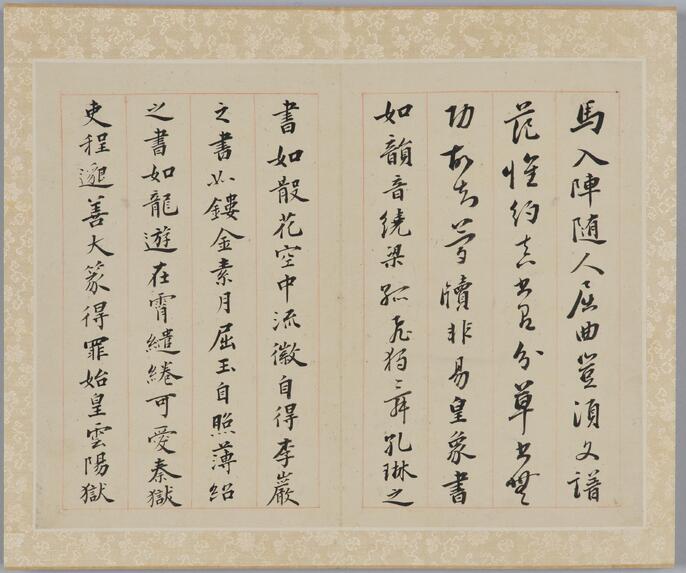 馬入陣随人屈曲豈湏文譜
范惟約真書有分草書無
功故知簡牘非易皇象書
如韻音繞梁孤飛獨舞孔琳之
書如散花空中流徽自得李巖
之書如鏤金素月屈玉自照薄紹
之書如龍遊在霄繾綣可愛秦獄
吏程邈善大篆得罪始皇雲陽獄